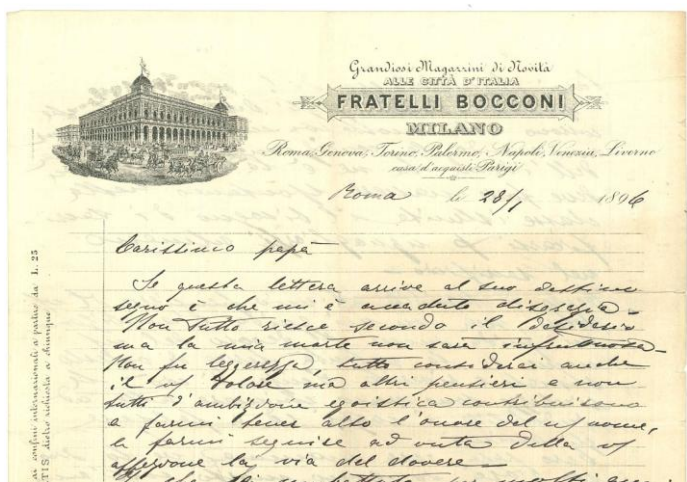 Grandiosi Magazzini di Novità
ALLE CITTÀ D'ITALIA
FRATELLI BOCCONI
MILANO
Roma, Genova, Torino, Palermo, Napoli, Venezia, Livorno
casa d'acquisti Parigi
Roma li 28/1 1896
Carissimo papà
Se questa lettera arriva al suo destino
segno è che mi è accaduto disgrazia.
Non tutto riesce secondo il desiderio
ma la mia morte non sarà infruttuosa.
Non fu leggerezza, tutto considerai anche
il vs/ dolore ma altri pensieri e non
tutti d'ambizione egoistica contribuirono
a farmi tener alto l'onore del vs/ nome,
e farmi seguire ad onta della vs/
affezione la via del dovere
ai confini internazionali a partire da L. 25
TIS dietro richiesta a chiunque